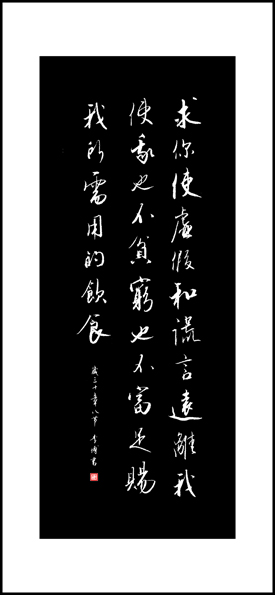 求你使虛假和謊言遠離我
使我也不貧窮也不富足賜
我所需用的飲食
箴三十章八節